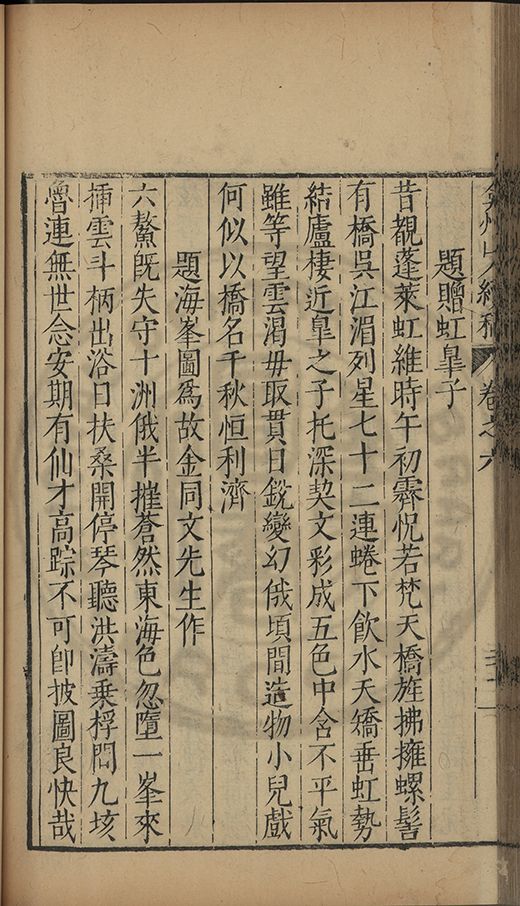 弇州山人續稿 卷之六
題贈虹臯子
昔觀蓬萊虹維時午初霽怳若梵天橋旌拂擁螺髻
有橋吳江湄列星七十二連蜷下飲水夭矯垂虹勢
結廬棲近臯之子托深契文彩成五色中含不平氣
雖等望雲渴毋取貫日銳變幻俄頃間造物小兒戲
何似以橋名千秋恒利濟
題海峯圖爲故金同文先生作
六鰲旣失守十洲俄半摧蒼然東海色忽墮一峯來
揷雲斗柄出浴日扶桑開停琴聽洪濤乗桴問九垓
魯連無世念安期有仙才高踪不可卽披圖良快哉